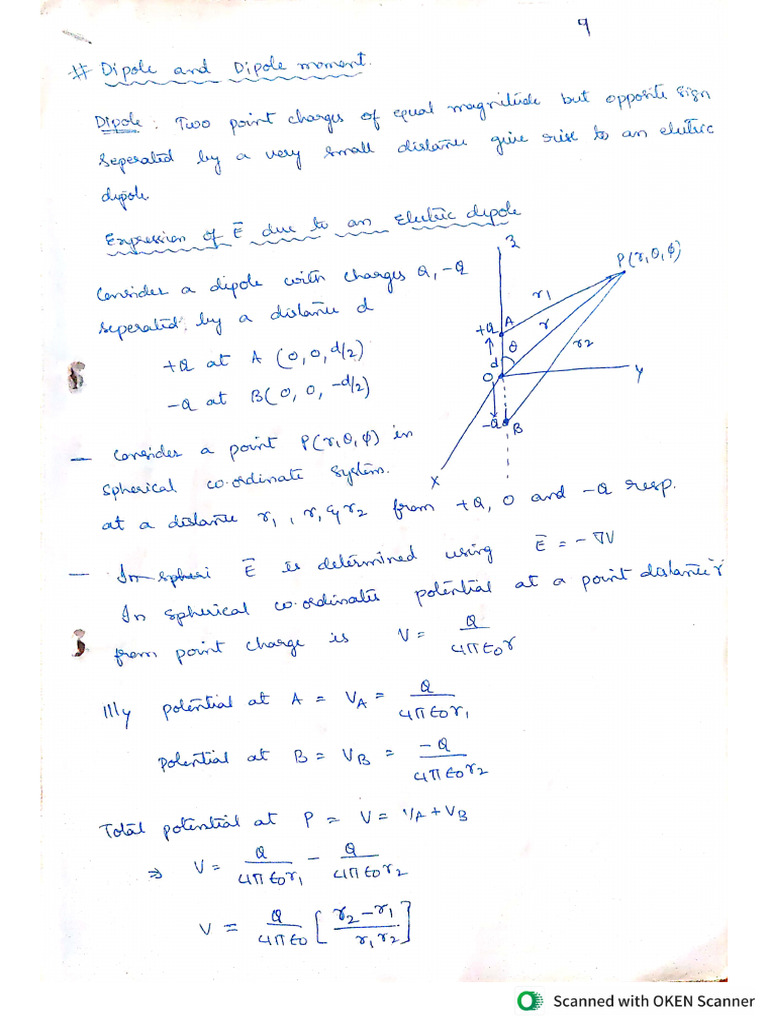 9
# Dipole and Dipole moment.
Dipole : Two point charges of equal magnitude but opposite sign
seperated by a very small distance give rise to an electric
dipole.
Expression of E̅ due to an Electric dipole
Consider a dipole with charges Q, -Q
seperated by a distance d
+Q at A (0, 0, d/2)
-Q at B(0, 0, -d/2)
z
P(r, θ, φ)
r1
+Q A
r
r2
d θ
O
y
-Q B
x
— Consider a point P(r, θ, φ) in
spherical co-ordinate system.
at a distance r1, r, & r2 from +Q, O and -Q resp.
— In spheri E̅ is determined using E̅ = -∇V
In spherical co-ordinates potential at a point distance 'r'
from point charge is V = Q / 4πε0r
lllly potential at A = VA = Q / 4πε0r1
Potential at B = VB = -Q / 4πε0r2
Total potential at P = V = VA + VB
⇒ V = Q / 4πε0r1 - Q / 4πε0r2
V = Q / 4πε0 [ r2 - r1 / r1 r2 ]
Scanned with OKEN Scanner